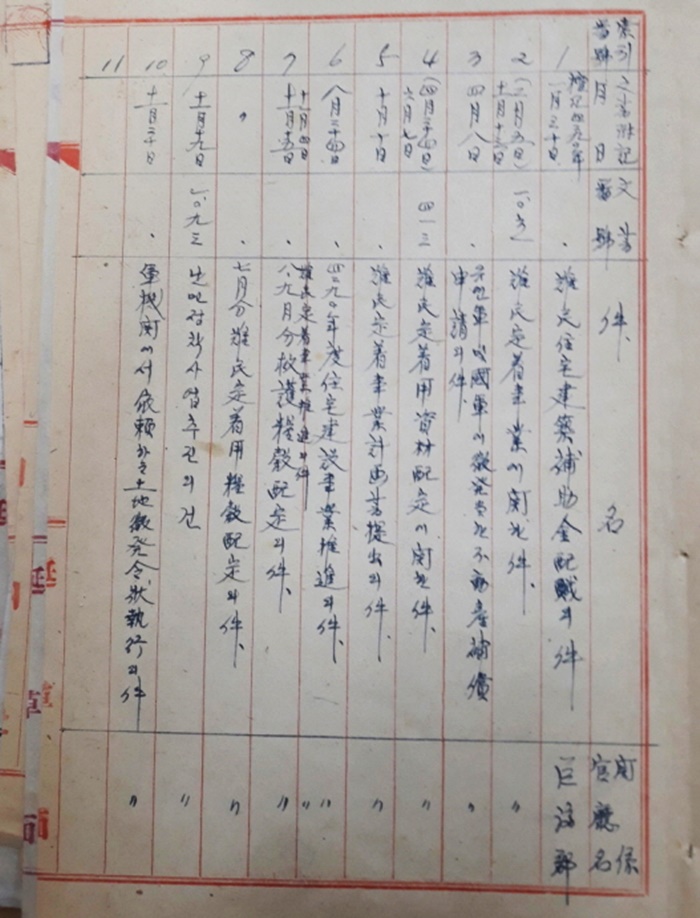 索引番號
文書
月日
文書番號
件名
関係官廳名
1
檀紀四二九〇年
一月三十日
難民住宅建築補助金配賦의件
巨濟郡
2
(二月五日)
十月十六日
難民定着事業에関한件、
〃
3
四月八日
申請의件、
〃
4
(四月二十四日)
六月七日
四一三
難民定着用資材配定에関한件、
〃
5
十月十日
難民定着事業計画書提出의件、
〃
6
八月二十四日
四二九〇年度住宅建設事業推進의件、
〃
難民定着事業推進의件
〃
7
十月四日
十月十五日
八、九月分救護糧穀配定의件、
〃
8
〃
七月分難民定着用糧穀配定의件、
〃
9
十一月十九日
一〇九三
난민정착사업추진의건
〃
10
十一月二十日
軍機関에서依頼하는土地徴発令状執行의件
〃
11